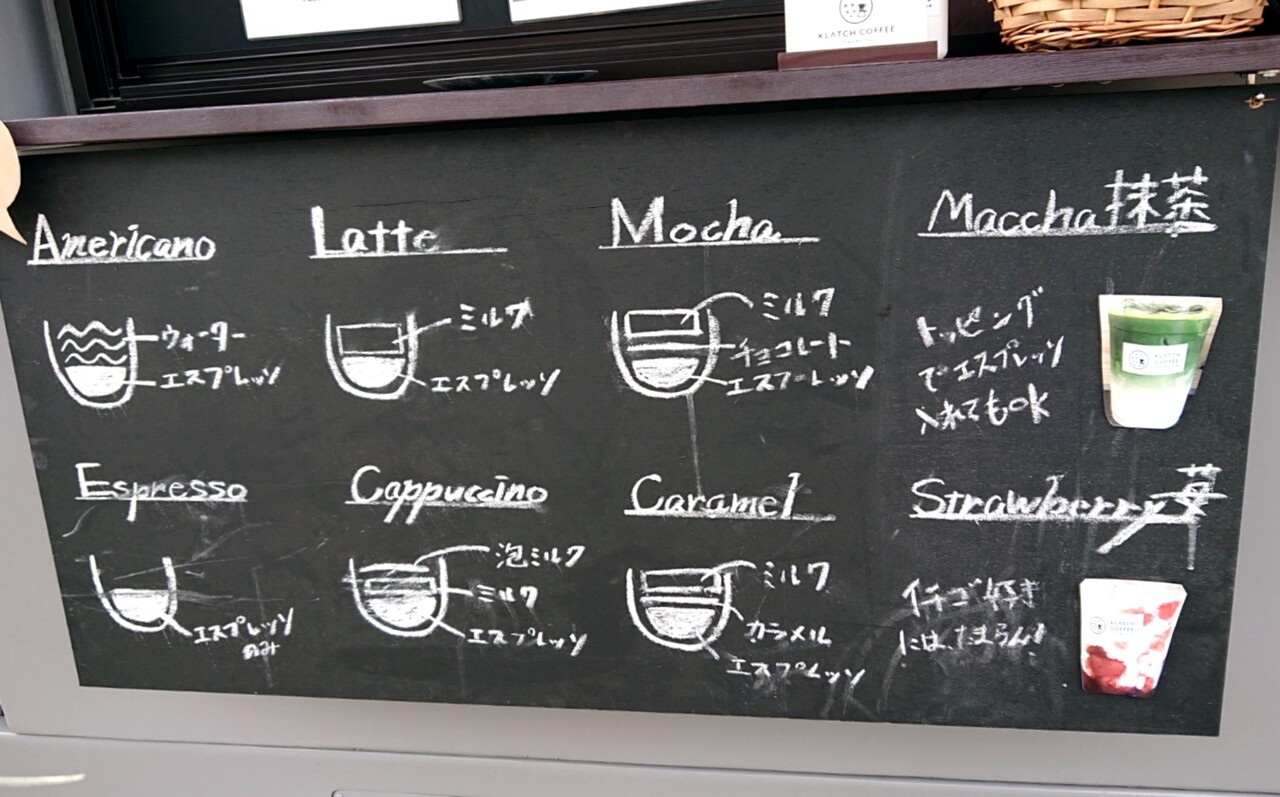 KLATCH COFFEE
Americano
ウォーター
エスプレッソ
Latte
ミルク
エスプレッソ
Mocha
ミルク
チョコレート
エスプレッソ
Maccha抹茶
トッピング
でエスプレッソ
入れてもOK
KLATCH
COFFEE
Espresso
エスプレッソ
のみ
Cappuccino
泡ミルク
ミルク
エスプレッソ
Caramel
ミルク
カラメル
エスプレッソ
Strawberry苺
イチゴ好き
には、たまらん!
KLATCH
COFFEE